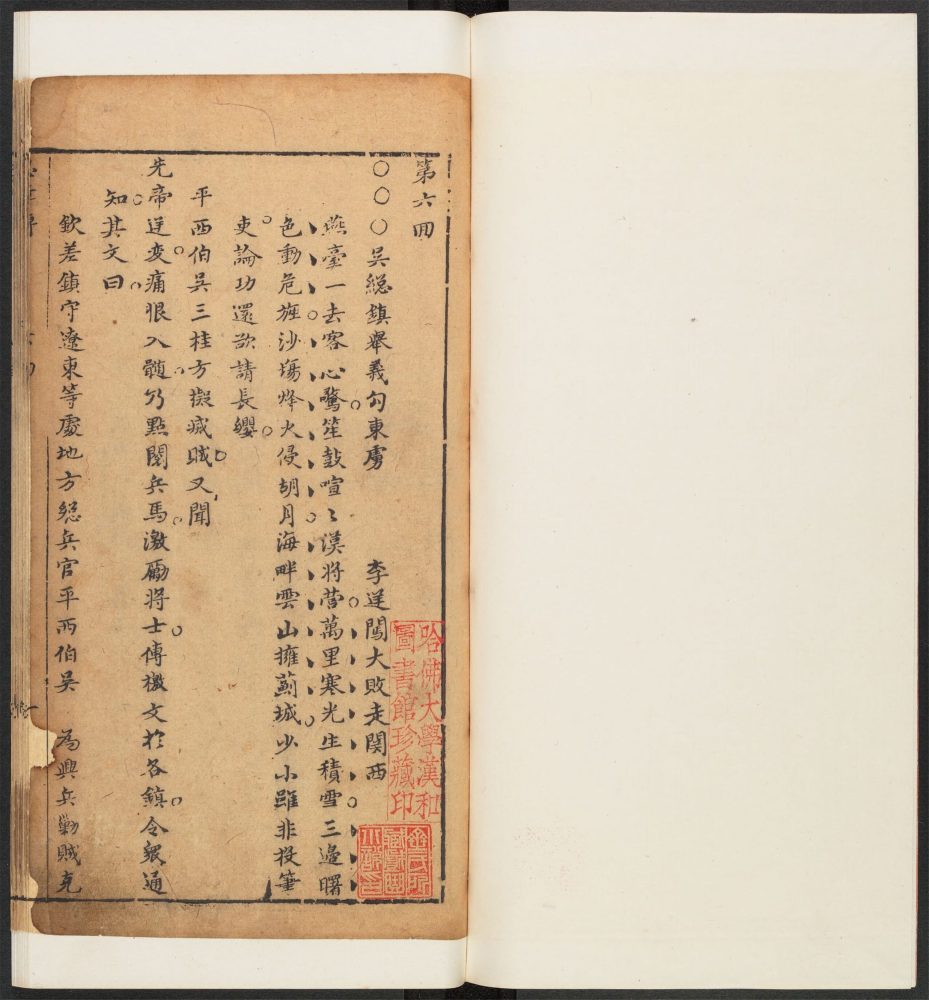 第六囬
○○○吳總鎮舉義勾東虜　李逆闖大敗走関西
燕臺一去客心驚笙鼓喧〻漢将營萬里寒光生積雪三邉曙
色動危旌沙塲烽火侵胡月海畔雲山擁薊城少小雖非投筆
吏論功還欲請長纓
平西伯吳三桂方擬滅賊又聞
先帝逆变痛恨入髓乃點閱兵馬激勵将士傳檄文於各鎮令衆通
知其文曰
欽差鎮守遼東等處地方總兵官平西伯吳　為興兵勦賊克
哈佛大學漢和
圖書館珍藏印